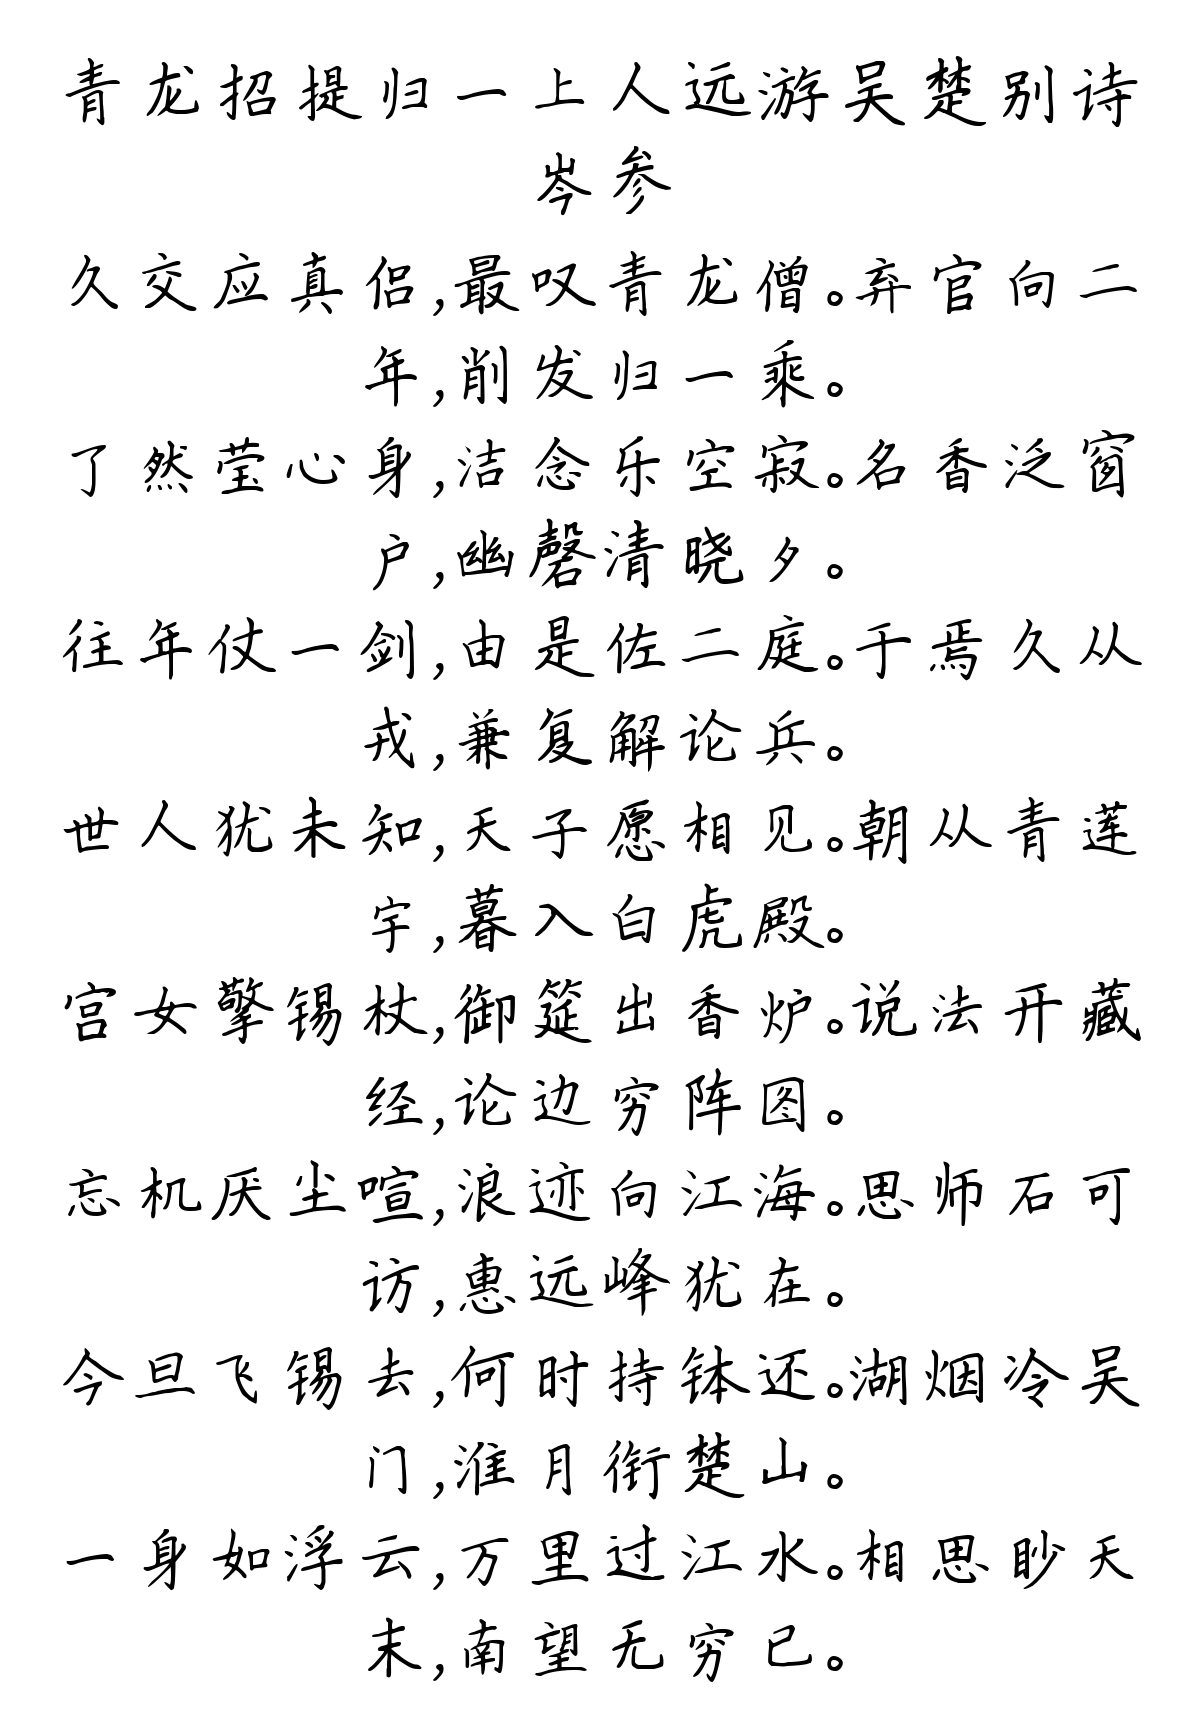 青龙招提归一上人远游吴楚别诗
岑参
久交应真侣,最叹青龙僧。弃官向二
年,削发归一乘。
了然莹心身,洁念乐空寂。名香泛窗
户,幽磬清晓夕。
往年仗一剑,由是佐二庭。于焉久从
戎,兼复解论兵。
世人犹未知,天子愿相见。朝从青莲
宇,暮入白虎殿。
宫女擎锡杖,御筵出香炉。说法开藏
经,论边穷阵图。
忘机厌尘喧,浪迹向江海。思师石可
访,惠远峰犹在。
今旦飞锡去,何时持钵还。湖烟冷吴
门,淮月衔楚山。
一身如浮云,万里过江水。相思眇天
末,南望无穷已。